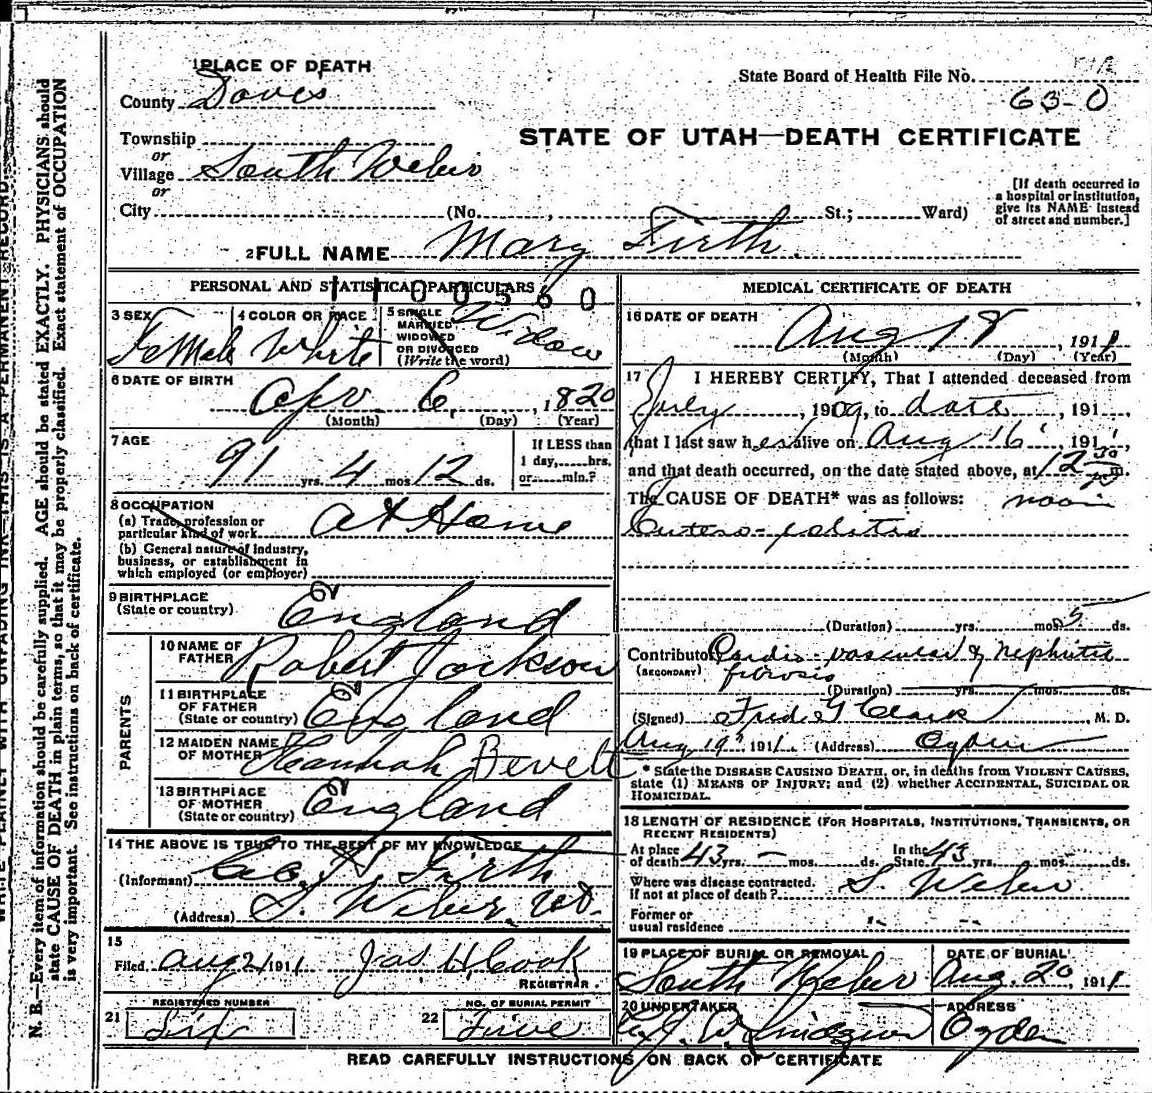 1 PLACE OF DEATH
State Board of Health File No.
63-0
County Daves
STATE OF UTAH—DEATH CERTIFICATE
Township
or
Village South Weber
or
City (No. , St.; Ward)
[If death occurred in
a hospital or institution,
give its NAME instead
of street and number.]
2 FULL NAME Mary Firth.
PERSONAL AND STATISTICAL PARTICULARS
1100560
3 SEX Female
4 COLOR OR RACE White
5 SINGLE
MARRIED
WIDOWED
OR DIVORCED
(Write the word)
Widow
6 DATE OF BIRTH
Apr. 6, 1820
(Month) (Day) (Year)
7 AGE
91 yrs. 4 mos. 12 ds.
If LESS than
1 day, hrs.
or min.?
8 OCCUPATION
(a) Trade, profession or
particular kind of work
At Home
(b) General nature of industry,
business, or establishment in
which employed (or employer)
9 BIRTHPLACE
(State or country)
England
PARENTS
10 NAME OF
FATHER
Robert Jackson
11 BIRTHPLACE
OF FATHER
(State or country)
England
12 MAIDEN NAME
OF MOTHER
Hannah Bevett
13 BIRTHPLACE
OF MOTHER
(State or country)
England
14 THE ABOVE IS TRUE TO THE BEST OF MY KNOWLEDGE
(Informant) Firth
(Address) S. Weber, Ut.
15
Filed Aug 21 1911 Jas. H. Cook
REGISTRAR.
REGISTERED NUMBER
21 Six
NO. OF BURIAL PERMIT
22 Five
MEDICAL CERTIFICATE OF DEATH
16 DATE OF DEATH
Aug 18, 1911
(Month) (Day) (Year)
17 I HEREBY CERTIFY, That I attended deceased from
, 1909, to date, 191 ,
that I last saw her alive on Aug 16, 1911,
and that death occurred, on the date stated above, at 12 30 m.
The CAUSE OF DEATH* was as follows: noon
Entero-
(Duration) yrs. mos. 5 ds.
Contributory Cardio-vascular & nephritic
(SECONDARY) fibrosis
(Duration) yrs. mos. ds.
(Signed) Fred G Clark, M. D.
Aug 19 1911. (Address) Ogden
* State the DISEASE CAUSING DEATH, or, in deaths from VIOLENT CAUSES,
state (1) MEANS OF INJURY; and (2) whether ACCIDENTAL, SUICIDAL OR
HOMICIDAL.
18 LENGTH OF RESIDENCE (FOR HOSPITALS, INSTITUTIONS, TRANSIENTS, OR
RECENT RESIDENTS)
At place
of death 43 yrs. — mos. ds.
In the
State 43 yrs. mos. ds.
Where was disease contracted,
if not at place of death? S. Weber
Former or
usual residence
19 PLACE OF BURIAL OR REMOVAL
South Weber
DATE OF BURIAL
Aug. 20, 1911
20 UNDERTAKER
ADDRESS
Ogden
READ CAREFULLY INSTRUCTIONS ON BACK OF CERTIFICATE
WRITE PLAINLY WITH UNFADING INK—THIS IS A PERMANENT RECORD.
N. B.—Every item of information should be carefully supplied. AGE should be stated EXACTLY. PHYSICIANS should
state CAUSE OF DEATH in plain terms, so that it may be properly classified. Exact statement of OCCUPATION
is very important. See instructions on back of certificate.